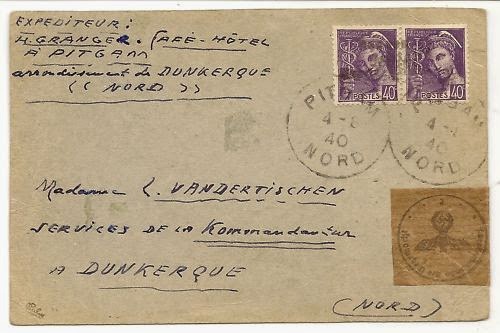 EXPEDITEUR:
H. GRANGER. CAFE-HÔTEL
A PITGAM
arrondissement de DUNKERQUE
(( NORD ))
POSTES 40
POSTES 40
PITGAM
4-8
40
NORD
4-
40
NORD
Madame L. VANDERTISCHEN
SERVICES DE LA Kommandantur
A DUNKERQUE
(NORD)